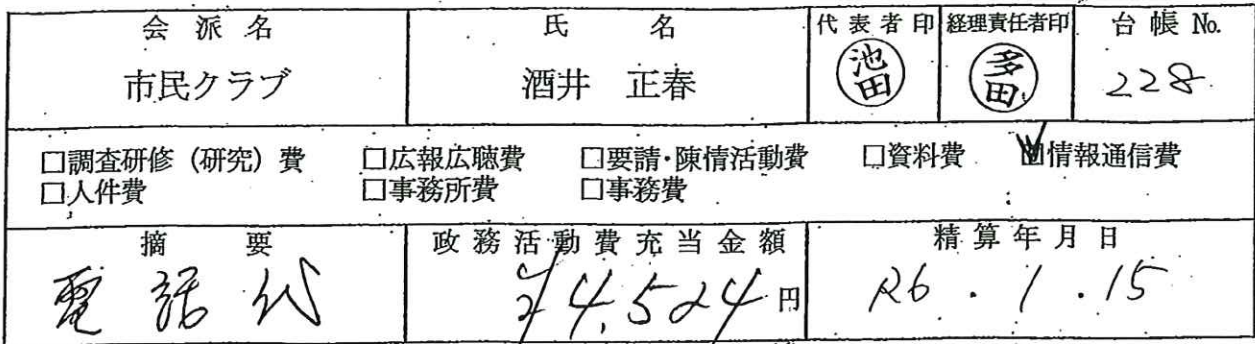 会派名 氏名 代表者印 経理責任者印 台帳No.
市民クラブ 酒井 正春 池田 多田 228
□調査研修（研究）費 □広報広聴費 □要請・陳情活動費 □資料費 ☑情報通信費
□人件費 □事務所費 □事務費
摘要 政務活動費充当金額 精算年月日
電話代 ¥4,524円 R6.1.15